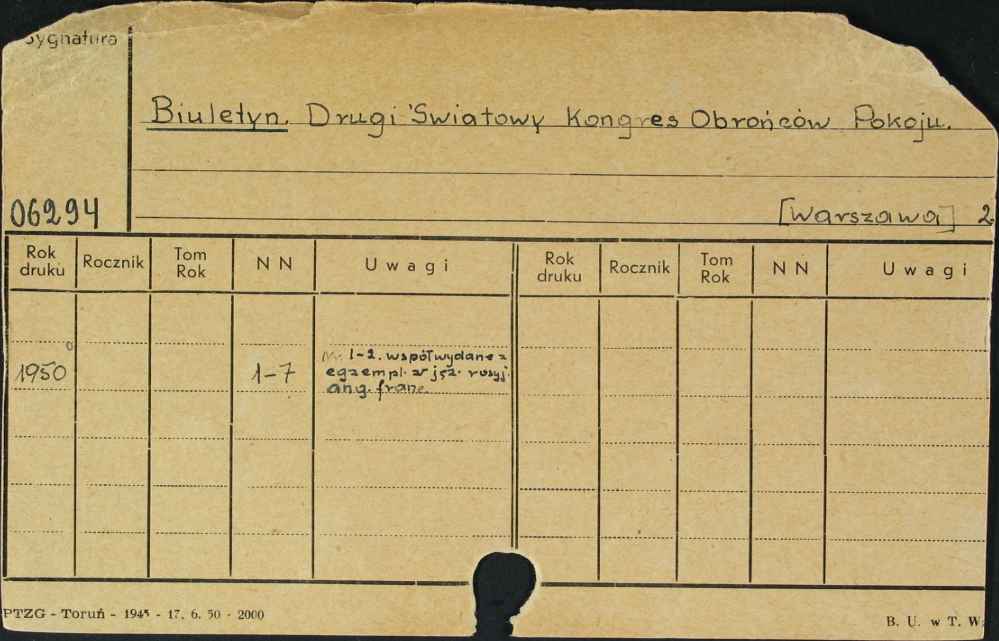 Sygnatura
Biuletyn. Drugi Światowy Kongres Obrońców Pokoju.
06294
[Warszawa] 2
Rok druku Rocznik Tom Rok N N Uwagi Rok druku Rocznik Tom Rok N N Uwagi
1950 1-7
Nr. 1-2. współwydane z
egzempl. w jęz. rosyj.
ang. franc.
PTZG - Toruń - 1945 - 17. 6. 50 - 2000
B. U. w T. W